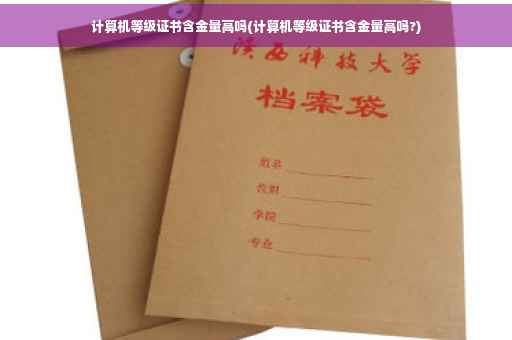 计算机等级证书含金量高吗(计算机等级证书含金量高吗?)
陕西科技大学
档案袋
姓名
学院
专业